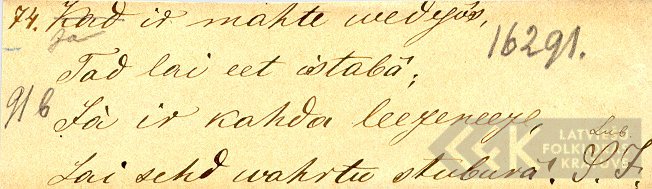 74. Kad ir mahte wedejòs,
Ja
16291.
Tad lai eet istabâ;
91b
Jà ir kahda leezeneeze,
Lub.
Lai sehd wahrtu stuburâ! S. J.
LATVIEŠU
FOLKLORAS
KRĀTUVE